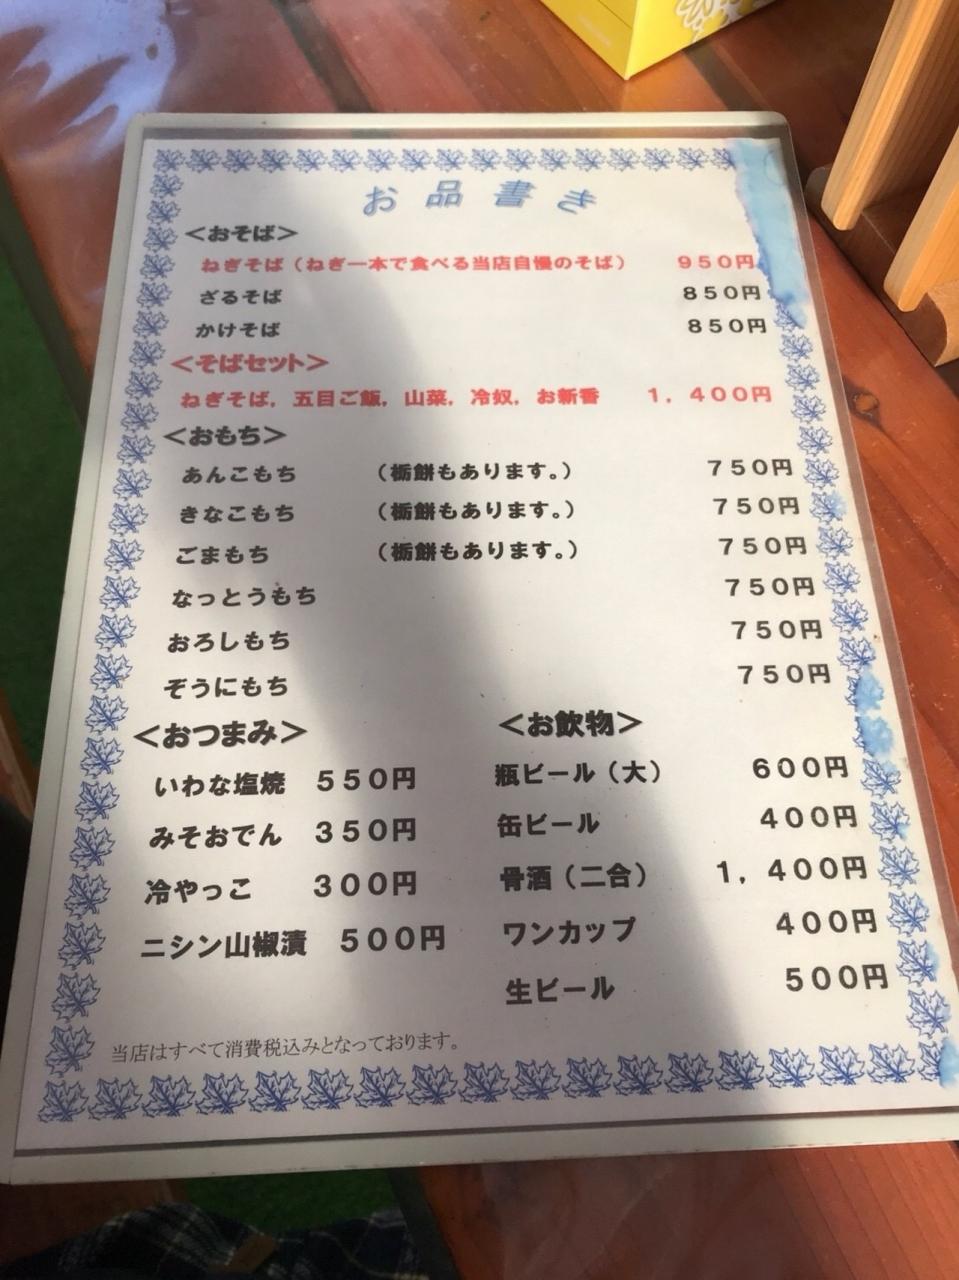 お品書き
＜おそば＞
ねぎそば（ねぎ一本で食べる当店自慢のそば） ９５０円
ざるそば ８５０円
かけそば ８５０円
＜そばセット＞
ねぎそば，五目ご飯，山菜，冷奴，お新香 １，４００円
＜おもち＞
あんこもち （栃餅もあります。） ７５０円
きなこもち （栃餅もあります。） ７５０円
ごまもち （栃餅もあります。） ７５０円
なっとうもち ７５０円
おろしもち ７５０円
ぞうにもち ７５０円
＜おつまみ＞
いわな塩焼 ５５０円
みそおでん ３５０円
冷やっこ ３００円
ニシン山椒漬 ５００円
＜お飲物＞
瓶ビール（大） ６００円
缶ビール ４００円
骨酒（二合） １，４００円
ワンカップ ４００円
生ビール ５００円
当店はすべて消費税込みとなっております。